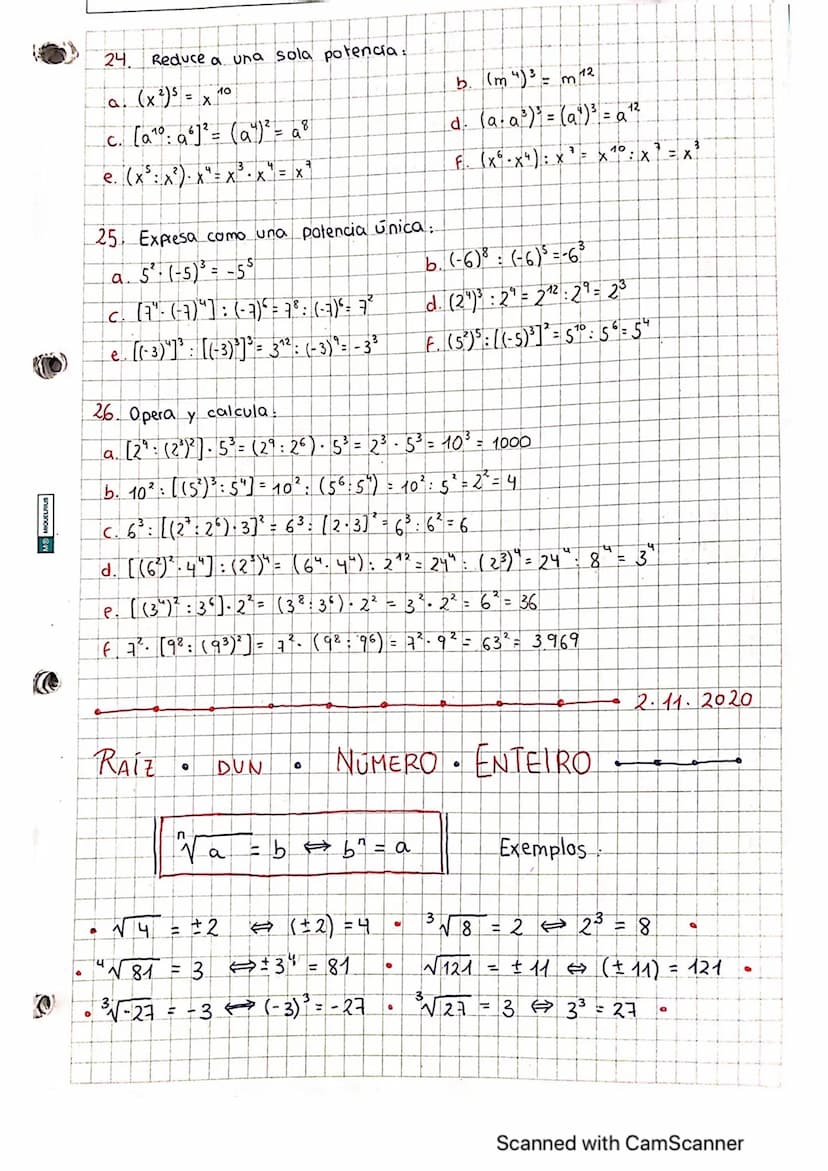 24. Reduce a una sola potencia:
a. (x²)⁵ = x¹⁰
b. (m⁴)³ = m¹²
c. [a¹⁰ : a⁶]² = (a⁴)² = a⁸
d. (a · a³)³ = (a⁴)³ = a¹²
e. (x⁵ : x²) · x⁴ = x³ · x⁴ = x⁷
f. (x⁶ · x⁴) : x⁷ = x¹⁰ : x⁷ = x³
25. Expresa como una potencia única:
a. 5² · (-5)³ = -5⁵
b. (-6)⁸ : (-6)⁵ = -6³
c. [7⁴ · (-7)⁴] : (-7)⁶ = 7⁸ : (-7)⁶ = 7²
d. (2⁴)³ : 2⁹ = 2¹² : 2⁹ = 2³
e. [(-3)⁴]³ : [(-3)³]³ = 3¹² : (-3)⁹ = -3³
f. (5²)⁵ : [(-5)³]² = 5¹⁰ : 5⁶ = 5⁴
26. Opera y calcula:
a. [2⁹ : (2³)²] · 5³ = (2⁹ : 2⁶) · 5³ = 2³ · 5³ = 10³ = 1000
b. 10² : [(5²)³ : 5⁴] = 10² : (5⁶ : 5⁴) = 10² : 5² = 2² = 4
c. 6³ : [(2⁷ : 2⁶) · 3]² = 6³ : [2 · 3]² = 6³ : 6² = 6
d. [(6²)² · 4⁴] : (2³)⁴ = (6⁴ · 4⁴) : 2¹² = 24⁴ : (2³)⁴ = 24⁴ : 8⁴ = 3⁴
e. [(3⁴)² : 3⁶] · 2² = (3⁸ : 3⁶) · 2² = 3² · 2² = 6² = 36
f. 7² · [9⁸ : (9³)²] = 7² · (9⁸ : 9⁶) = 7² · 9² = 63² = 3969
MIQUELRIUS
2.11.2020
RAÍZ · DUN · NÚMERO · ENTEIRO
ⁿ√a = b ⇔ bⁿ = a
Exemplos:
• √4 = ±2 ⇔ (±2) = 4 • ³√8 = 2 ⇔ 2³ = 8 •
• ⁴√81 = 3 ⇔ ±3⁴ = 81 • √121 = ±11 ⇔ (±11) = 121 •
• ³√-27 = -3 ⇔ (-3)³ = -27 • ³√27 = 3 ⇔ 3³ = 27 •
Scanned with CamScanner